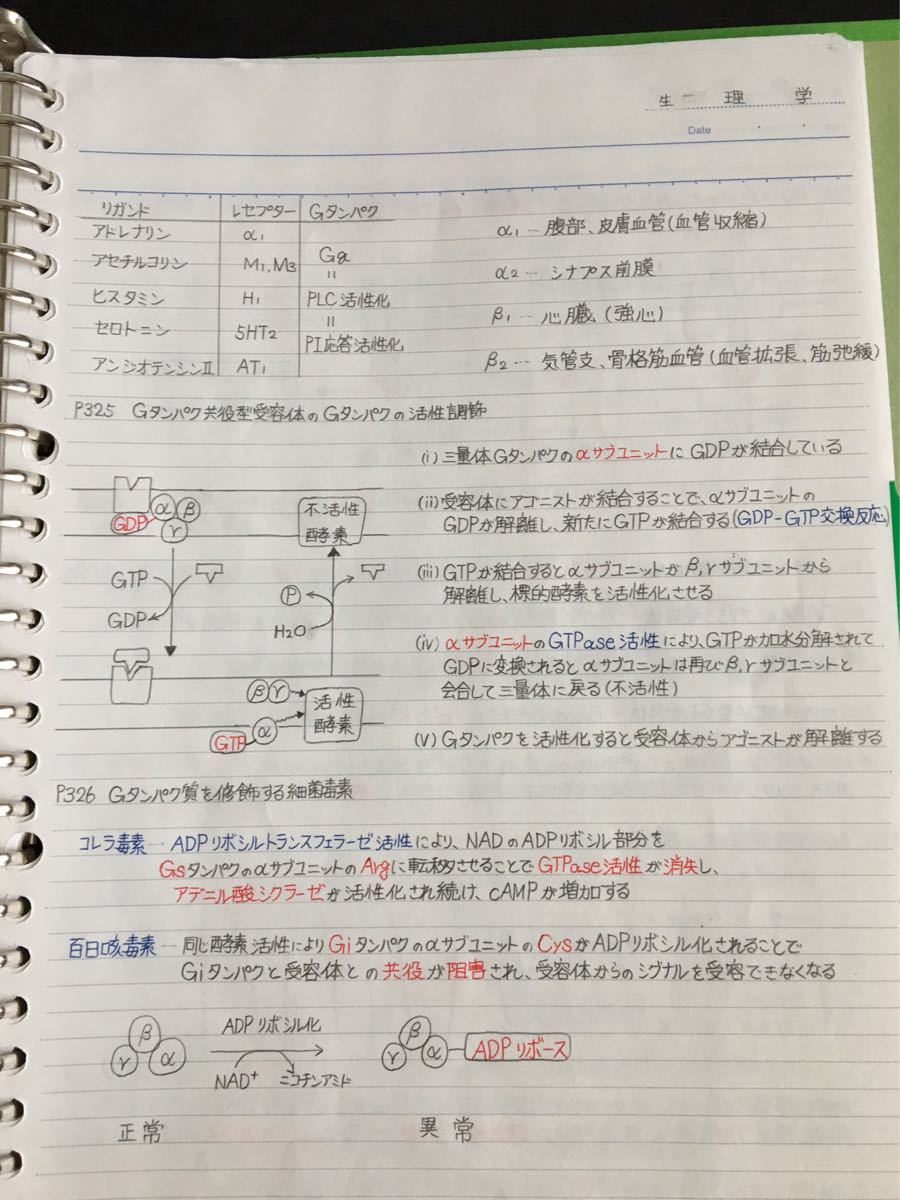 生理学
Date
リガンド レセプター Gタンパク
アドレナリン α1
アセチルコリン M1,M3 Gq
〃
ヒスタミン H1 PLC活性化
〃
セロトニン 5HT2
PI応答活性化
アンジオテンシンⅡ AT1
α1…腹部、皮膚血管(血管収縮)
α2…シナプス前膜
β1…心臓(強心)
β2…気管支、骨格筋血管(血管拡張、筋弛緩)
P325 Gタンパク共役型受容体のGタンパクの活性調節
(i) 三量体GタンパクのαサブユニットにGDPが結合している
(ii) 受容体にアゴニストが結合することで、αサブユニットの
GDPが解離し、新たにGTPが結合する(GDP-GTP交換反応)
(iii) GTPが結合するとαサブユニットがβ,γサブユニットから
解離し、標的酵素を活性化させる
(iv) αサブユニットのGTPase活性により、GTPが加水分解されて
GDPに変換されるとαサブユニットは再びβ,γサブユニットと
会合して三量体に戻る(不活性)
(V) Gタンパクを活性化すると受容体からアゴニストが解離する
α β
GDP
γ
不活性
酵素
GTP
GDP
P
H2O
β γ
α
GTP
活性
酵素
P326 Gタンパク質を修飾する細菌毒素
コレラ毒素…ADPリボシルトランスフェラーゼ活性により、NADのADPリボシル部分を
GsタンパクのαサブユニットのArgに転移させることでGTPase活性が消失し、
アデニル酸シクラーゼが活性化され続け、cAMPが増加する
百日咳毒素…同じ酵素活性によりGiタンパクのαサブユニットのCysがADPリボシル化されることで
Giタンパクと受容体との共役が阻害され、受容体からのシグナルを受容できなくなる
β
γ α
ADPリボシル化
NAD+ ニコチンアミド
β
γ α
ADPリボース
正常 異常